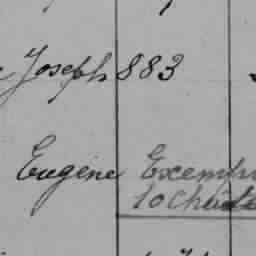 Joseph 883
Eugène Exemp
10